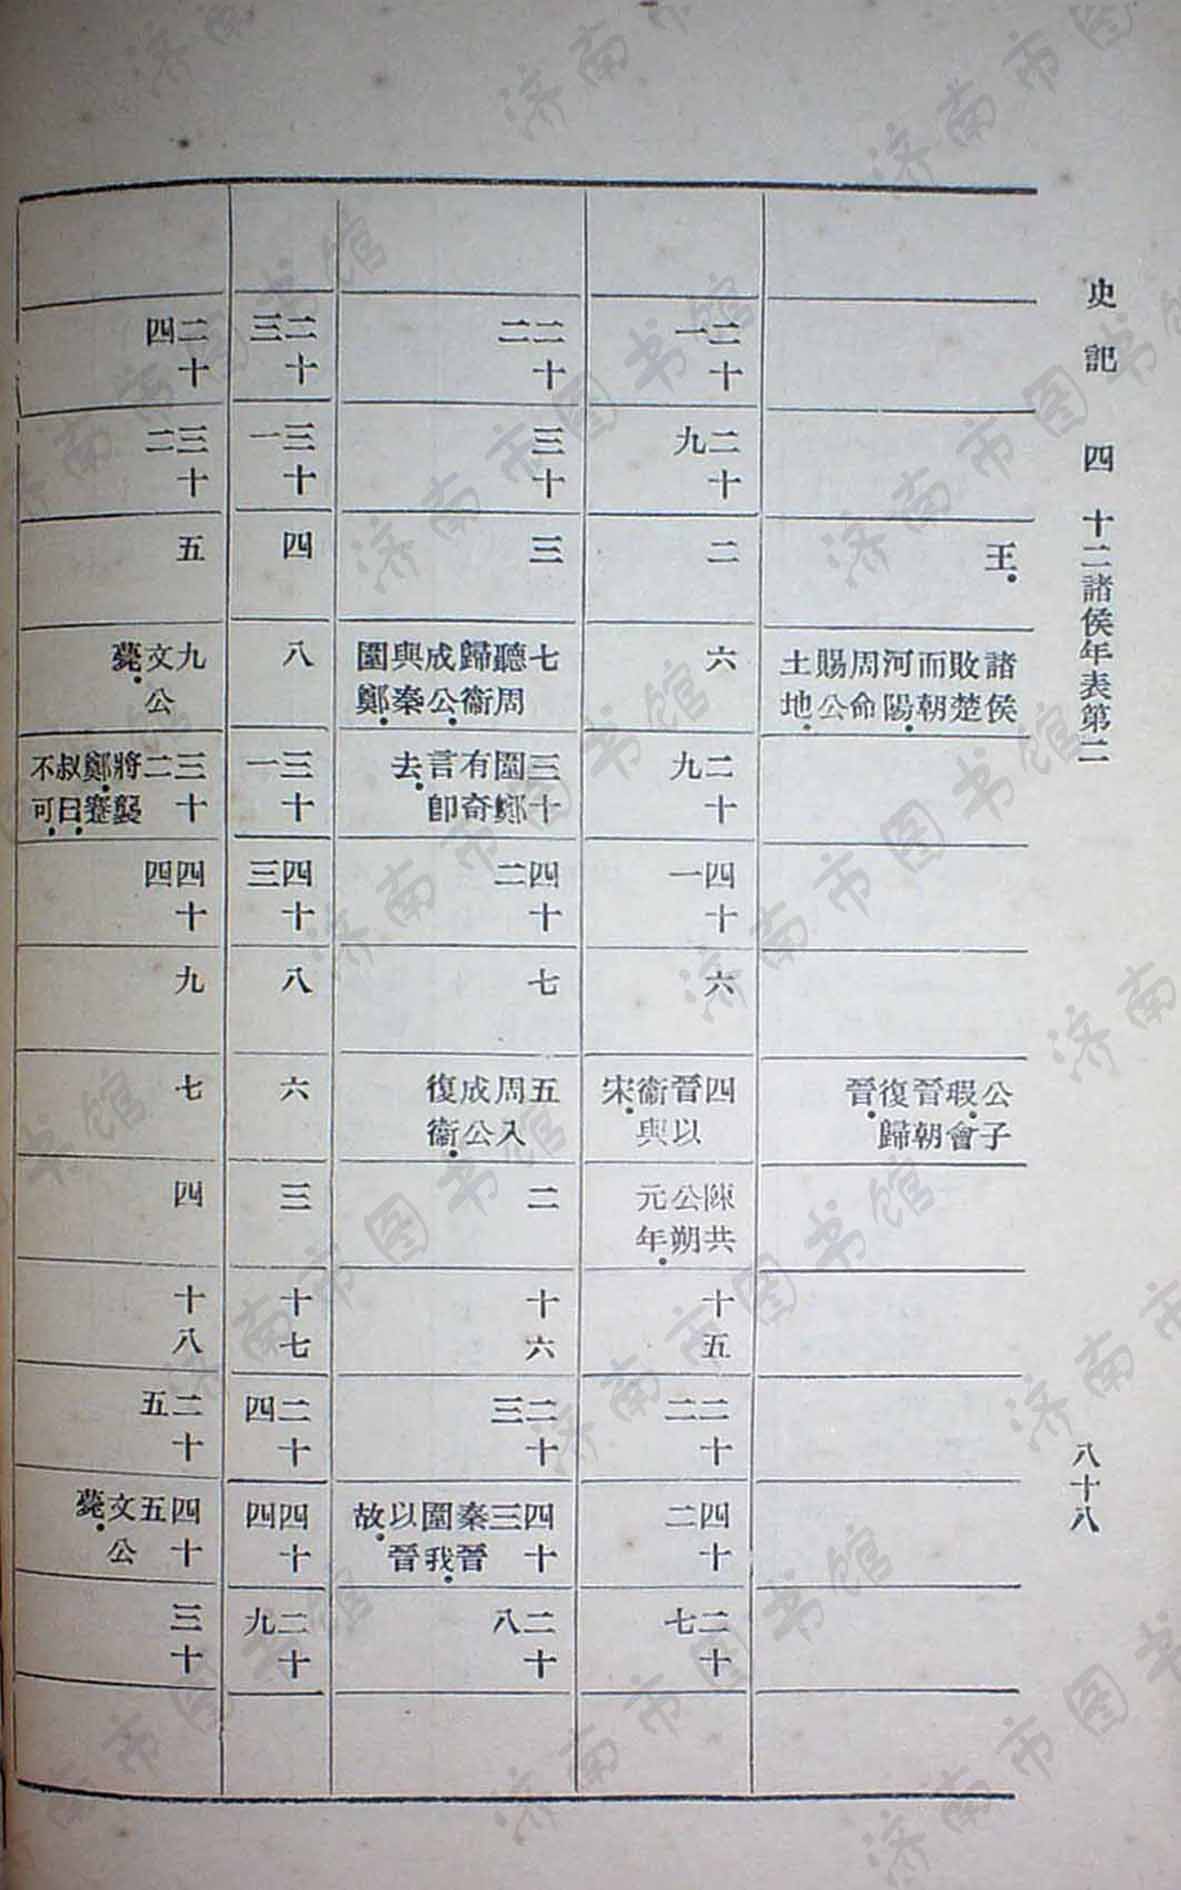 史記 四 十二諸侯年表第二
八十八
王。
諸侯敗楚而朝河陽。周命賜公土地。
公子瑕。會晉朝復歸晉。
二十一
二十九
二
六
二十九
四十一
六
四晉以衞與宋。
陳共公朔元年。
十五
二十二
四十二
二十七
二十二
三十
三
七聽周歸衞成公。與秦圍鄭。
三十圍鄭有奇言卽去。
四十二
七
五周入成公復衞。
二
十六
二十三
四十三秦晉圍我。以晉故。
二十八
二十三
三十一
四
八
三十一
四十三
八
六
三
十七
二十四
四十四
二十九
二十四
三十二
五
九文公薨。
三十二將襲鄭。蹇叔曰。不可。
四十四
九
七
四
十八
二十五
四十五文公薨。
三十
济南市图书馆